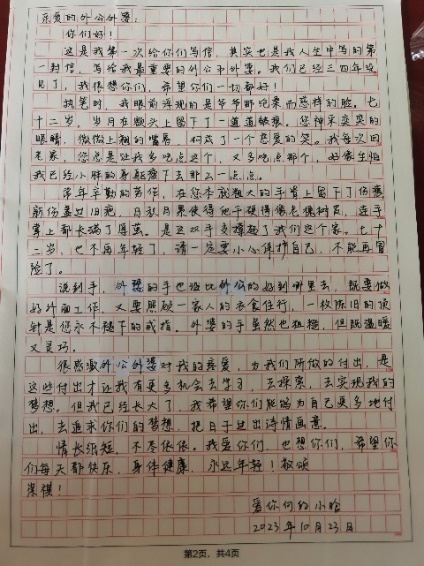 亲爱的外公外婆：
你们好！
这是我第一次给你们写信，其实也是我人生中写的第
一封信，写给我最重要的外公和外婆。我们已经三四年没
见了，我很想你们，希望你们一切都好！
执笔时，我眼前浮现的是爷爷那
慈祥的脸。七
十二岁，岁月在额头上留下了一道道皱纹。您神采奕奕的
眼睛，微微上翘的嘴唇，构成了一个慈爱的笑。我每次回
老家，您总是让我多吃点这个，又多吃点那个，好像生怕
我已经小胖的身躯瘦下去那么一点点。
常年辛勤的劳作，在您本就粗大的手掌上留下了伤痕
新伤盖过旧疤，日积月累使得他干硬得像老槐树皮，连手
掌上都长满了厚茧。是这双手支撑起了我们这个家。七十
二岁，也不再年轻了，请一定要小心保护自己，不能再冒
险了。
说到手，外婆的手也没比外公的好到哪里去，既要做
好外面工作，又要照顾一家人的衣食住行，一枚陈旧的顶
针是您永不褪下的戒指。外婆的手虽然也粗糙，但既温暖
又灵巧。
很感激外公外婆对我的亲爱，为我们所做的付出，是
这些付出才让我有更多机会去学习，去探索，去实现我的
梦想。但我已经长大了，我希望你们能够为自己更多地付
出，去追求你们的梦想，把日子过出诗情画意。
情长纸短，不尽依依。我爱你们，也想你们，希望你
们每天都快乐，身体健康，永远年轻！敬颂
崇祺！
爱你们的小
2023年10月23日
第2页，共4页